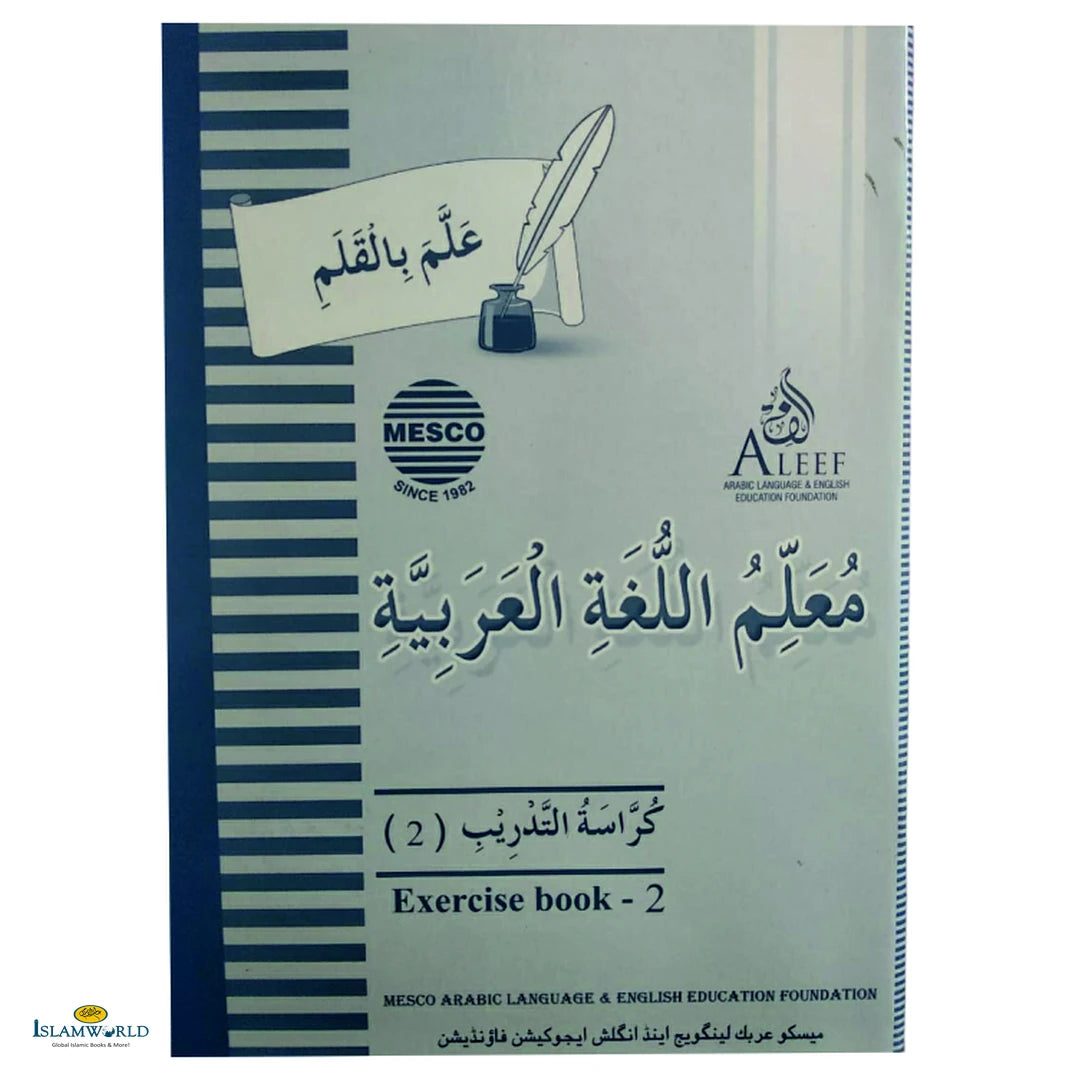 عَلَّمَ بِالْقَلَمِ
MESCO
SINCE 1982
ALEEF
ARABIC LANGUAGE & ENGLISH
EDUCATION FOUNDATION
مُعَلِّمُ اللُّغَةِ الْعَرَبِيَّةِ
كُرَّاسَةُ التَّدْرِيْبِ (2)
Exercise book - 2
MESCO ARABIC LANGUAGE & ENGLISH EDUCATION FOUNDATION
ميسكو عربك لينگويج اينڈ انگلش ايجوكيشن فاؤنڈيشن
ISLAMWORLD
Global Islamic Books & More!